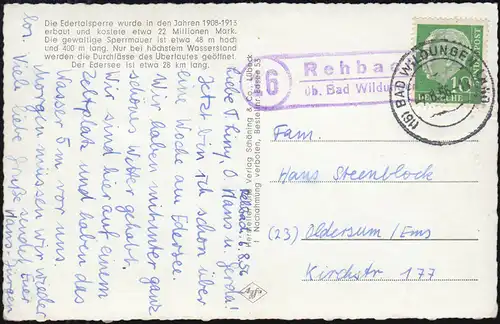 Die Edertalsperre wurde in den Jahren 1908-1913
erbaut und kostete etwa 22 Millionen Mark.
Die gewaltige Sperrmauer ist etwa 48 m hoch
und 400 m lang. Nur bei höchstem Wasserstand
werden die Durchlässe des Überlaufes geöffnet.
Der Edersee ist etwa 28 km lang.
Liebe Thiny, O. Hans u. Gerda!
Jetzt bin ich schon über
eine Woche am Edersee.
Wir haben mitunter ganz
schönes Wetter gehabt.
Wir sind hier auf einem
Zeltplatz und haben das
Wasser 5 m vor uns.
Morgen müssen wir wieder
los. Viele liebe Grüße sendet Euer
Hans-Jürgen
Herstellung und Verlag Schöning & Co., Lübeck
Nachnahmung verboten, Bestellnr. Edersee 53
6
Rehbac
üb. Bad Wildu
(16) BAD WILDUNGEN
POST
10
Fam.
Hans Steenblock
(23) Oldersum/Ems
Kirchstr 177